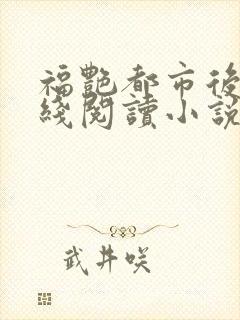 福艷都市後
綫閱讀小説
武井咲